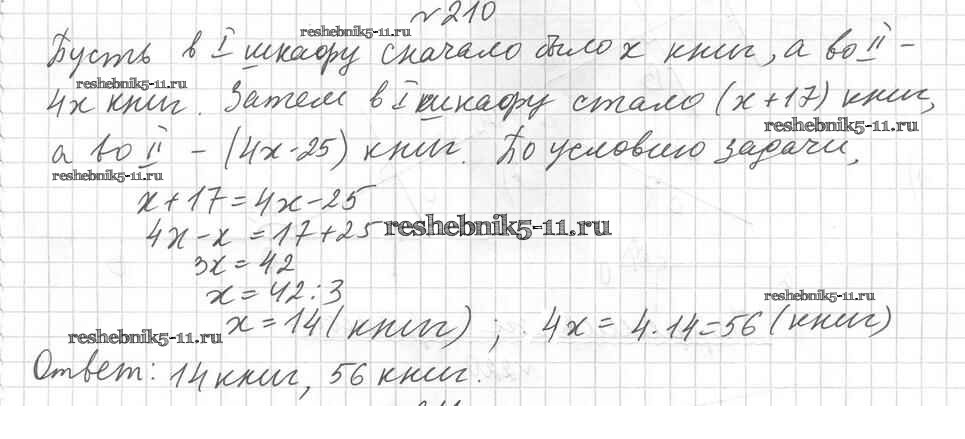 №210
reshebnik5-11.ru
Пусть в I шкафу сначало было x книг, а во II –
reshebnik5-11.ru
4x книг. Затем в I шкафу стало (x+17) книг,
reshebnik5-11.ru
а во II – (4x-25) книг. По условию задачи,
reshebnik5-11.ru
x+17=4x-25
reshebnik5-11.ru
4x-x=17+25
3x=42
x=42:3
reshebnik5-11.ru
x=14(книг); 4x=4·14=56(книг)
reshebnik5-11.ru
Ответ: 14 книг, 56 книг.